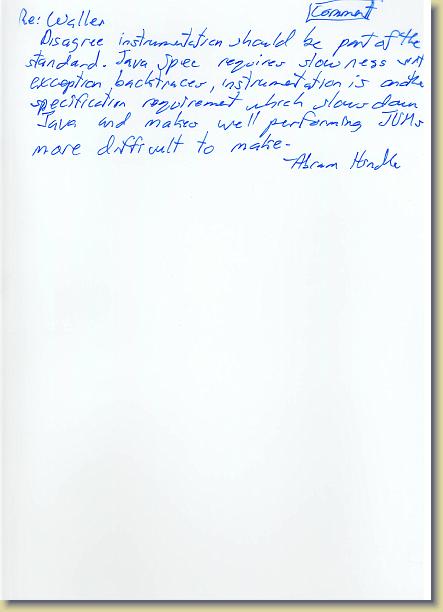 Re: Waller
Comment
Disagree instrumentation should be part of the
standard. Java spec requires slowness w/
exception backtraces, instrumentation is another
specification requirement which slows down
Java and makes well performing JVMs
more difficult to make.
-Abram Hindle